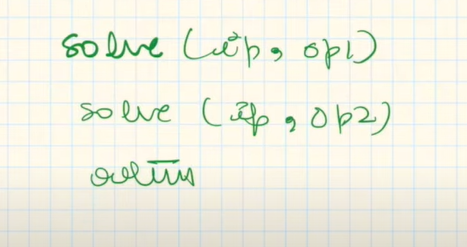 solve (ip, op1)
solve (ip, op2)
return